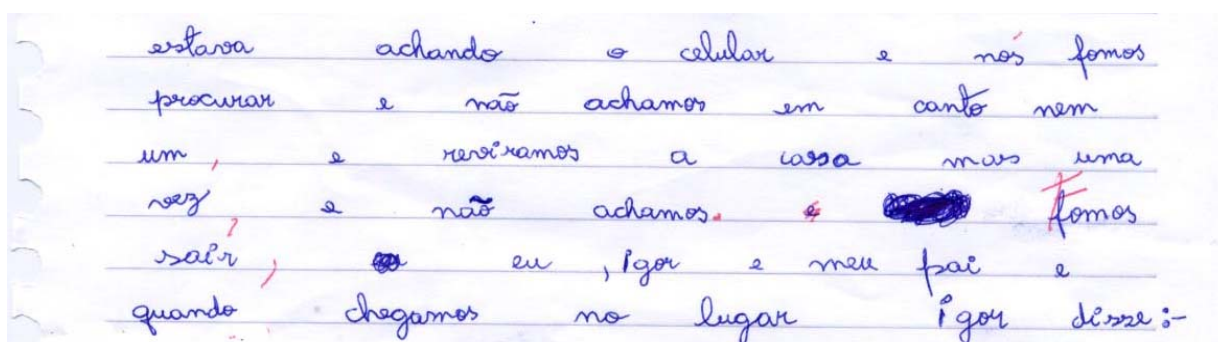 estava achando o celular e nós fomos
procurar e não achamos em canto nem
um, e reviramos a cassa mas uma
vez, e não achamos. e Fomos
sair, eu, igor e meu pai e
quando chegamos no lugar igor disse:-